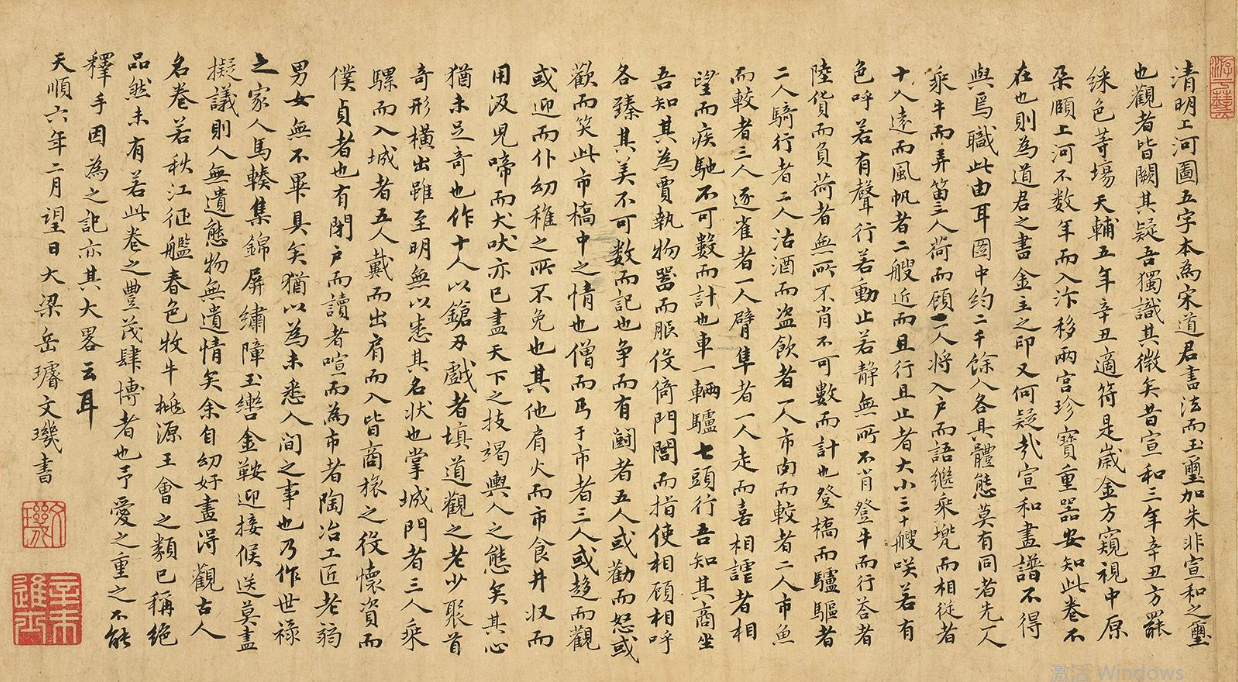 清明上河圖五字本為宋道君書法而玉璽加朱非宣和之璽
也觀者皆闕其疑吾獨識其微矣昔宣和三年辛丑方罷
綵色等場天輔五年辛丑適符是歲金方窺視中原
朶頤上河不数年而入汴移兩宮珍寶重器安知此卷不
在也則為道君之書金主之印又何疑哉宣和畫譜不得
與焉職此由耳圖中約二千餘人各具體態莫有同者先一人
乘牛而弄笛三人荷而顧二人將入戶而語繼乘兠而相從者
十人遠而風帆者二艘近而且行且止者大小三十艘咲若有
色呼若有聲行若動止若静無所不肖登牛而行荅者
陸貨而負荷者無所不肖不可數而計也登橋而驢驅者
二人騎行者二人沽酒而盗飲者一人市肉而較者二人市魚
而較者三人逐雀者一人臂隼者一人走而喜相謔者相
望而疾馳不可數而計也車一輛驢七頭行吾知其商坐
吾知其為賈執物器而服伇倚門閭而指使相顧相呼
各臻其美不可数而記也争而有鬪者五人或勸而怒或
歡而笑此市橋中之情也僧而丐于市者三人或趍而觀
或迎而仆幼稚之所不免也其他肩火而市食井収而
用汲児啼而犬吠亦已盡天下之技竭輿人之態矣其心
猶未足奇也作十人以鎗刃戲者填道觀之老少聚首
奇形横出雖至明無以悉其名状也掌城門者三人乘
騾而入城者五人戴而出肩而入皆商旅之役懷資而
僕貞者也有閉户而讀者喧而為市者陶冶工匠老弱
男女無不畢具矣猶以為未悉人间之事也乃作世禄
之家人馬輳集錦屏繡障玉轡金鞍迎接候送莫盡
擬議則人無遺態物無遺情矣余自幼好畫淂觀古人
名卷若秋江征艦春色牧牛桃源王會之類已稱絶
品然未有若此卷之豊茂肆博者也予愛之重之不能
釋手因為之記亦其大畧云耳
天順六年二月望日大梁岳璿文璣書
文璣
辛未進士
激活 Windows